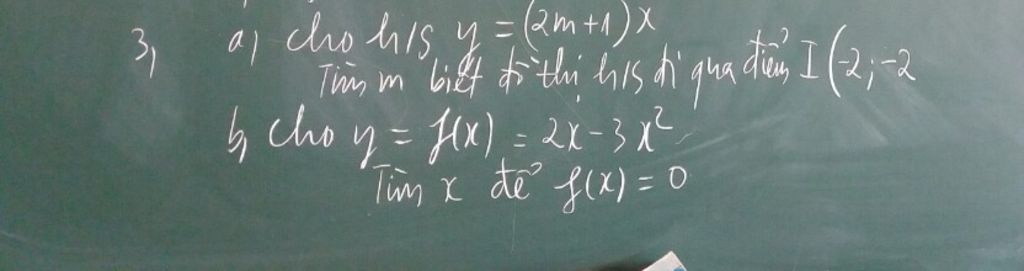 3, a, cho h/s y = (2m+1)x
Tìm m biết đồ thị h/s đi qua điểm I (-2; -2
b, cho y = f(x) = 2x - 3x²
Tìm x để f(x) = 0